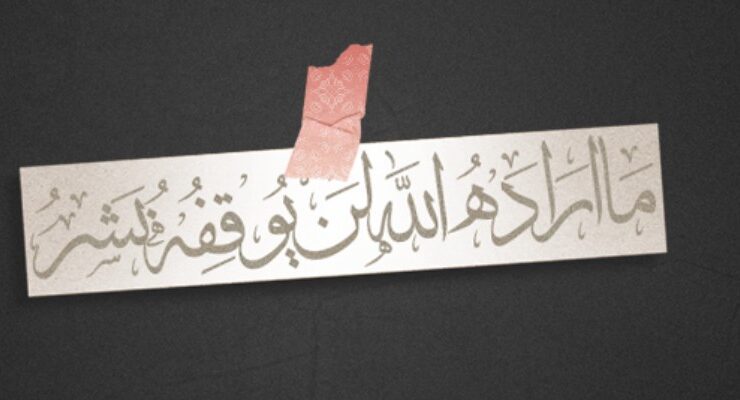 مَا ارَادَهُ اللَّه لَن يُوُقِفُهُ بَشَرُ